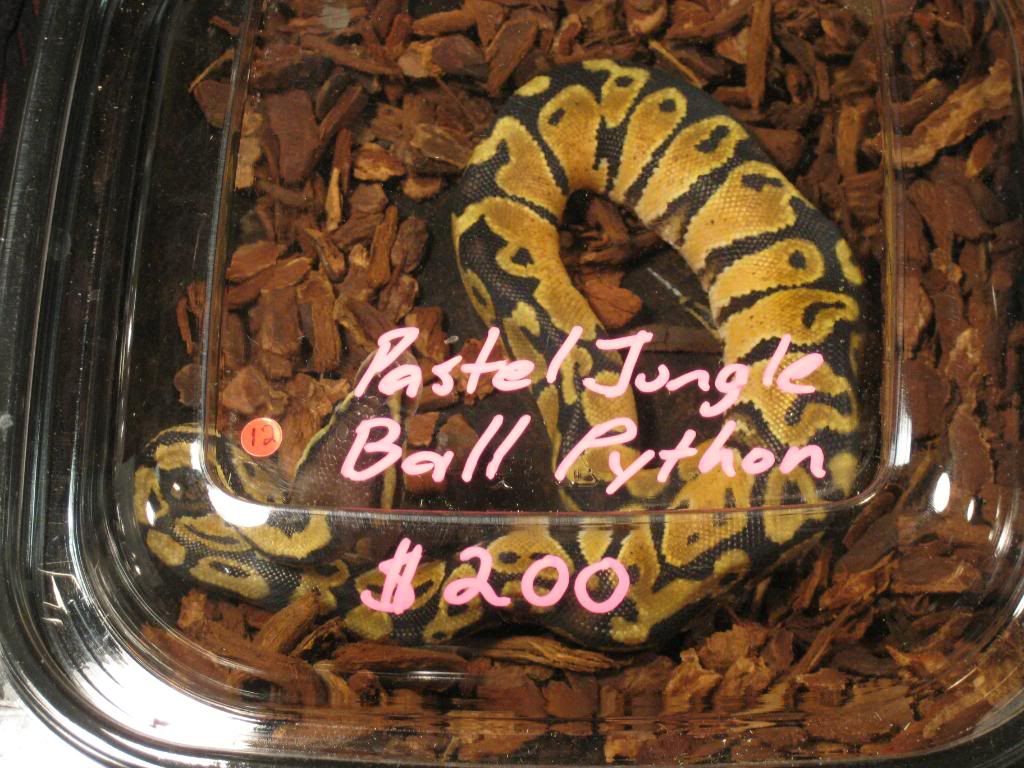 Pastel Jungle
12
Ball Python
$200